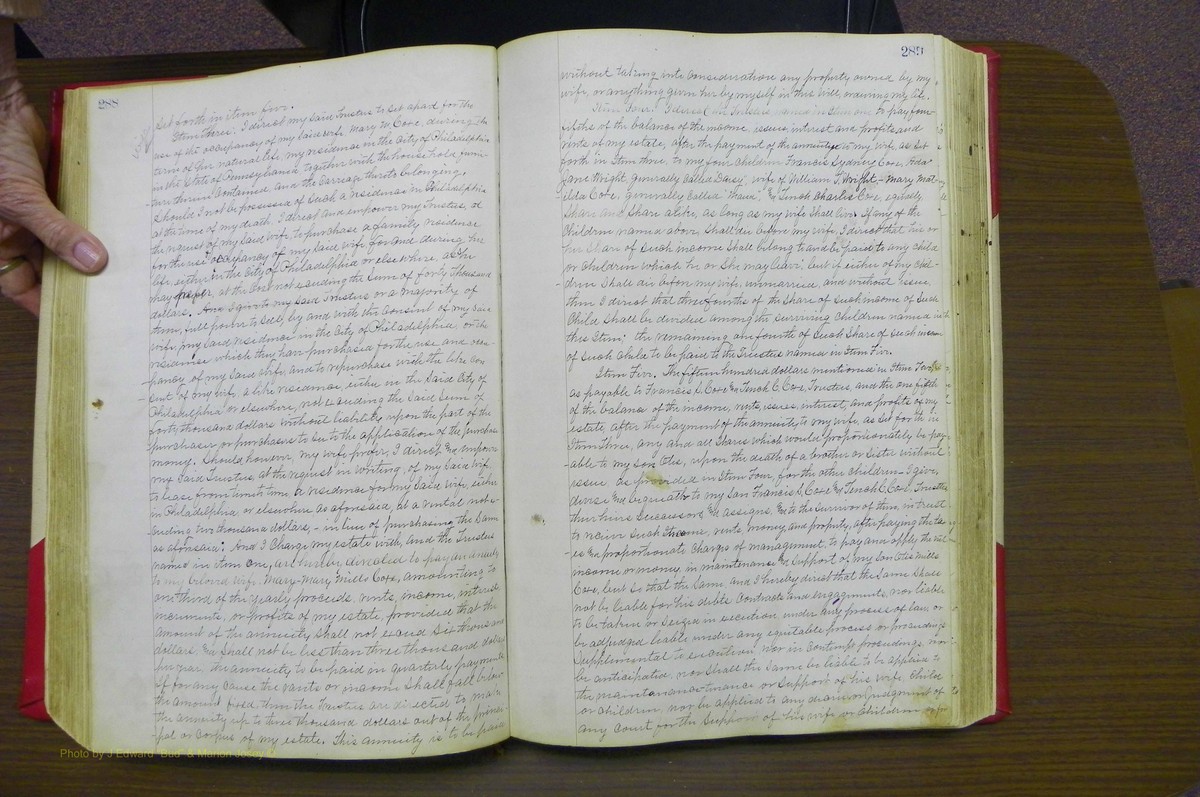 288
set forth in item five.
Item three: I direct my said Trustees to set apart for the
use of the occupancy of my said wife Mary W. Coxe, during the
term of her natural life, my residence in the City of Philadelphia
in the State of Pennsylvania, together with the household furni-
ture therein contained and the carriage thereto belonging.
Should I not be possessed of such a residence in Philadelphia
at the time of my death, I direct and empower my Trustees, at
the request of my said wife, to purchase a family residence
for the use & occupancy of my said wife for and during her
life, either in the City of Philadelphia or elsewhere, as she
may prefer, at the cost not exceeding the sum of forty thousand
dollars. And I give to my said Trustees or a majority of
them, full power to sell, by and with the consent of my said
wife, my said residence in the City of Philadelphia, or the
residence which they have purchased for the use and occu-
pancy of my said wife, and to repurchase with the like con-
sent of my wife, a like residence either in the said City of
Philadelphia or elsewhere, not exceeding the said sum of
forty thousand dollars without liability upon the part of the
purchaser or purchasers to see to the application of the purchase
money. Should however, my wife prefer, I direct & empower
my said Trustees, at the request in writing, of my said wife
to lease from time to time a residence for my said wife, either
in Philadelphia or elsewhere as aforesaid, at a rental not ex-
ceeding two thousand dollars, - in lieu of purchasing the same
as aforesaid: And I charge my estate with, and the Trustees
named in item one, are hereby directed to pay an annuity
to my beloved wife, Mary- Mary Mills Coxe, amounting to
one third of the yearly proceeds, rents, income, interest
increments, or profits of my estate, provided that the
amount of the annuity shall not exceed six thousand
dollars & shall not be less than three thousand dollars
per year the annuity to be paid in quarterly payments
If for any cause the rents or income shall fall below
the amount fixed, then the Trustees are directed to make
the annuity up to three thousand dollars out of the princi-
pal or corpus of my estate. This annuity is to be paid
289
without taking into consideration any property owned by my
wife, or anything given her by myself in this will, or during my life.
Item Four: I direct the Trustees named in item one to pay four
fifths of the balance of the income, issues, interest and profits, and
rents of my estate, after the payment of the annuity to my wife, as set
forth in Item three, to my four children Francis Sydney Coxe,
Jane Wright generally called Daisy, wife of William T. Wright - Mary Mat-
ilda Coxe, generally called Maud, & Tench Charles Coxe, equally
share and share alike, as long as my wife shall live. If any of the
children named above shall die before my wife, I direct that his or
her share of such income shall belong to and be paid to any child
or children which he or she may leave; but if either of my chil-
dren shall die before my wife, unmarried, and without issue,
then I direct that three fourths of the share of such income of such
child shall be divided among the surviving children named in
this item; the remaining one fourth of such share of such income
of such child to be paid to the Trustees named in Item Five.
Item Five. The fifteen hundred dollars mentioned in Item Four
as payable to Francis S. Coxe & Tench C. Coxe, Trustees, and the one fifth
of the balance of the income, rents, issues, interest, and profits of my
estate, after the payment of the annuity to my wife, as set forth in
Item Three, any and all shares which would proportionately be pay-
able to my son Otis, upon the death of a brother or sister without
issue as provided in Item Four, for the other children - I give,
devise & bequeath to my son Francis S. Coxe & Tench C. Coxe, Trustees
their heirs successors & assigns, & to the survivor of them, in trust
to receive such income, rents, money, and property, after paying the tax-
es & proportionate charges of management, to pay and apply the net
income or money in maintenance & support of my son Otis Mills
Coxe, but so that the same, and I hereby direct that the same shall
not be liable for his debts contracts and engagements, nor liable
to be taken or seized in execution under any process of law or
be adjudged liable under any equitable process or proceedings
supplemental to execution nor in contempt proceedings, nor
be anticipated, nor shall the same be liable to be applied to
the maintenance or support of his wife, child
or children, nor be applied to any decree or judgment of
any court for the support of his wife or children
Photo by J Edward "Bud" & Marion Josey ©